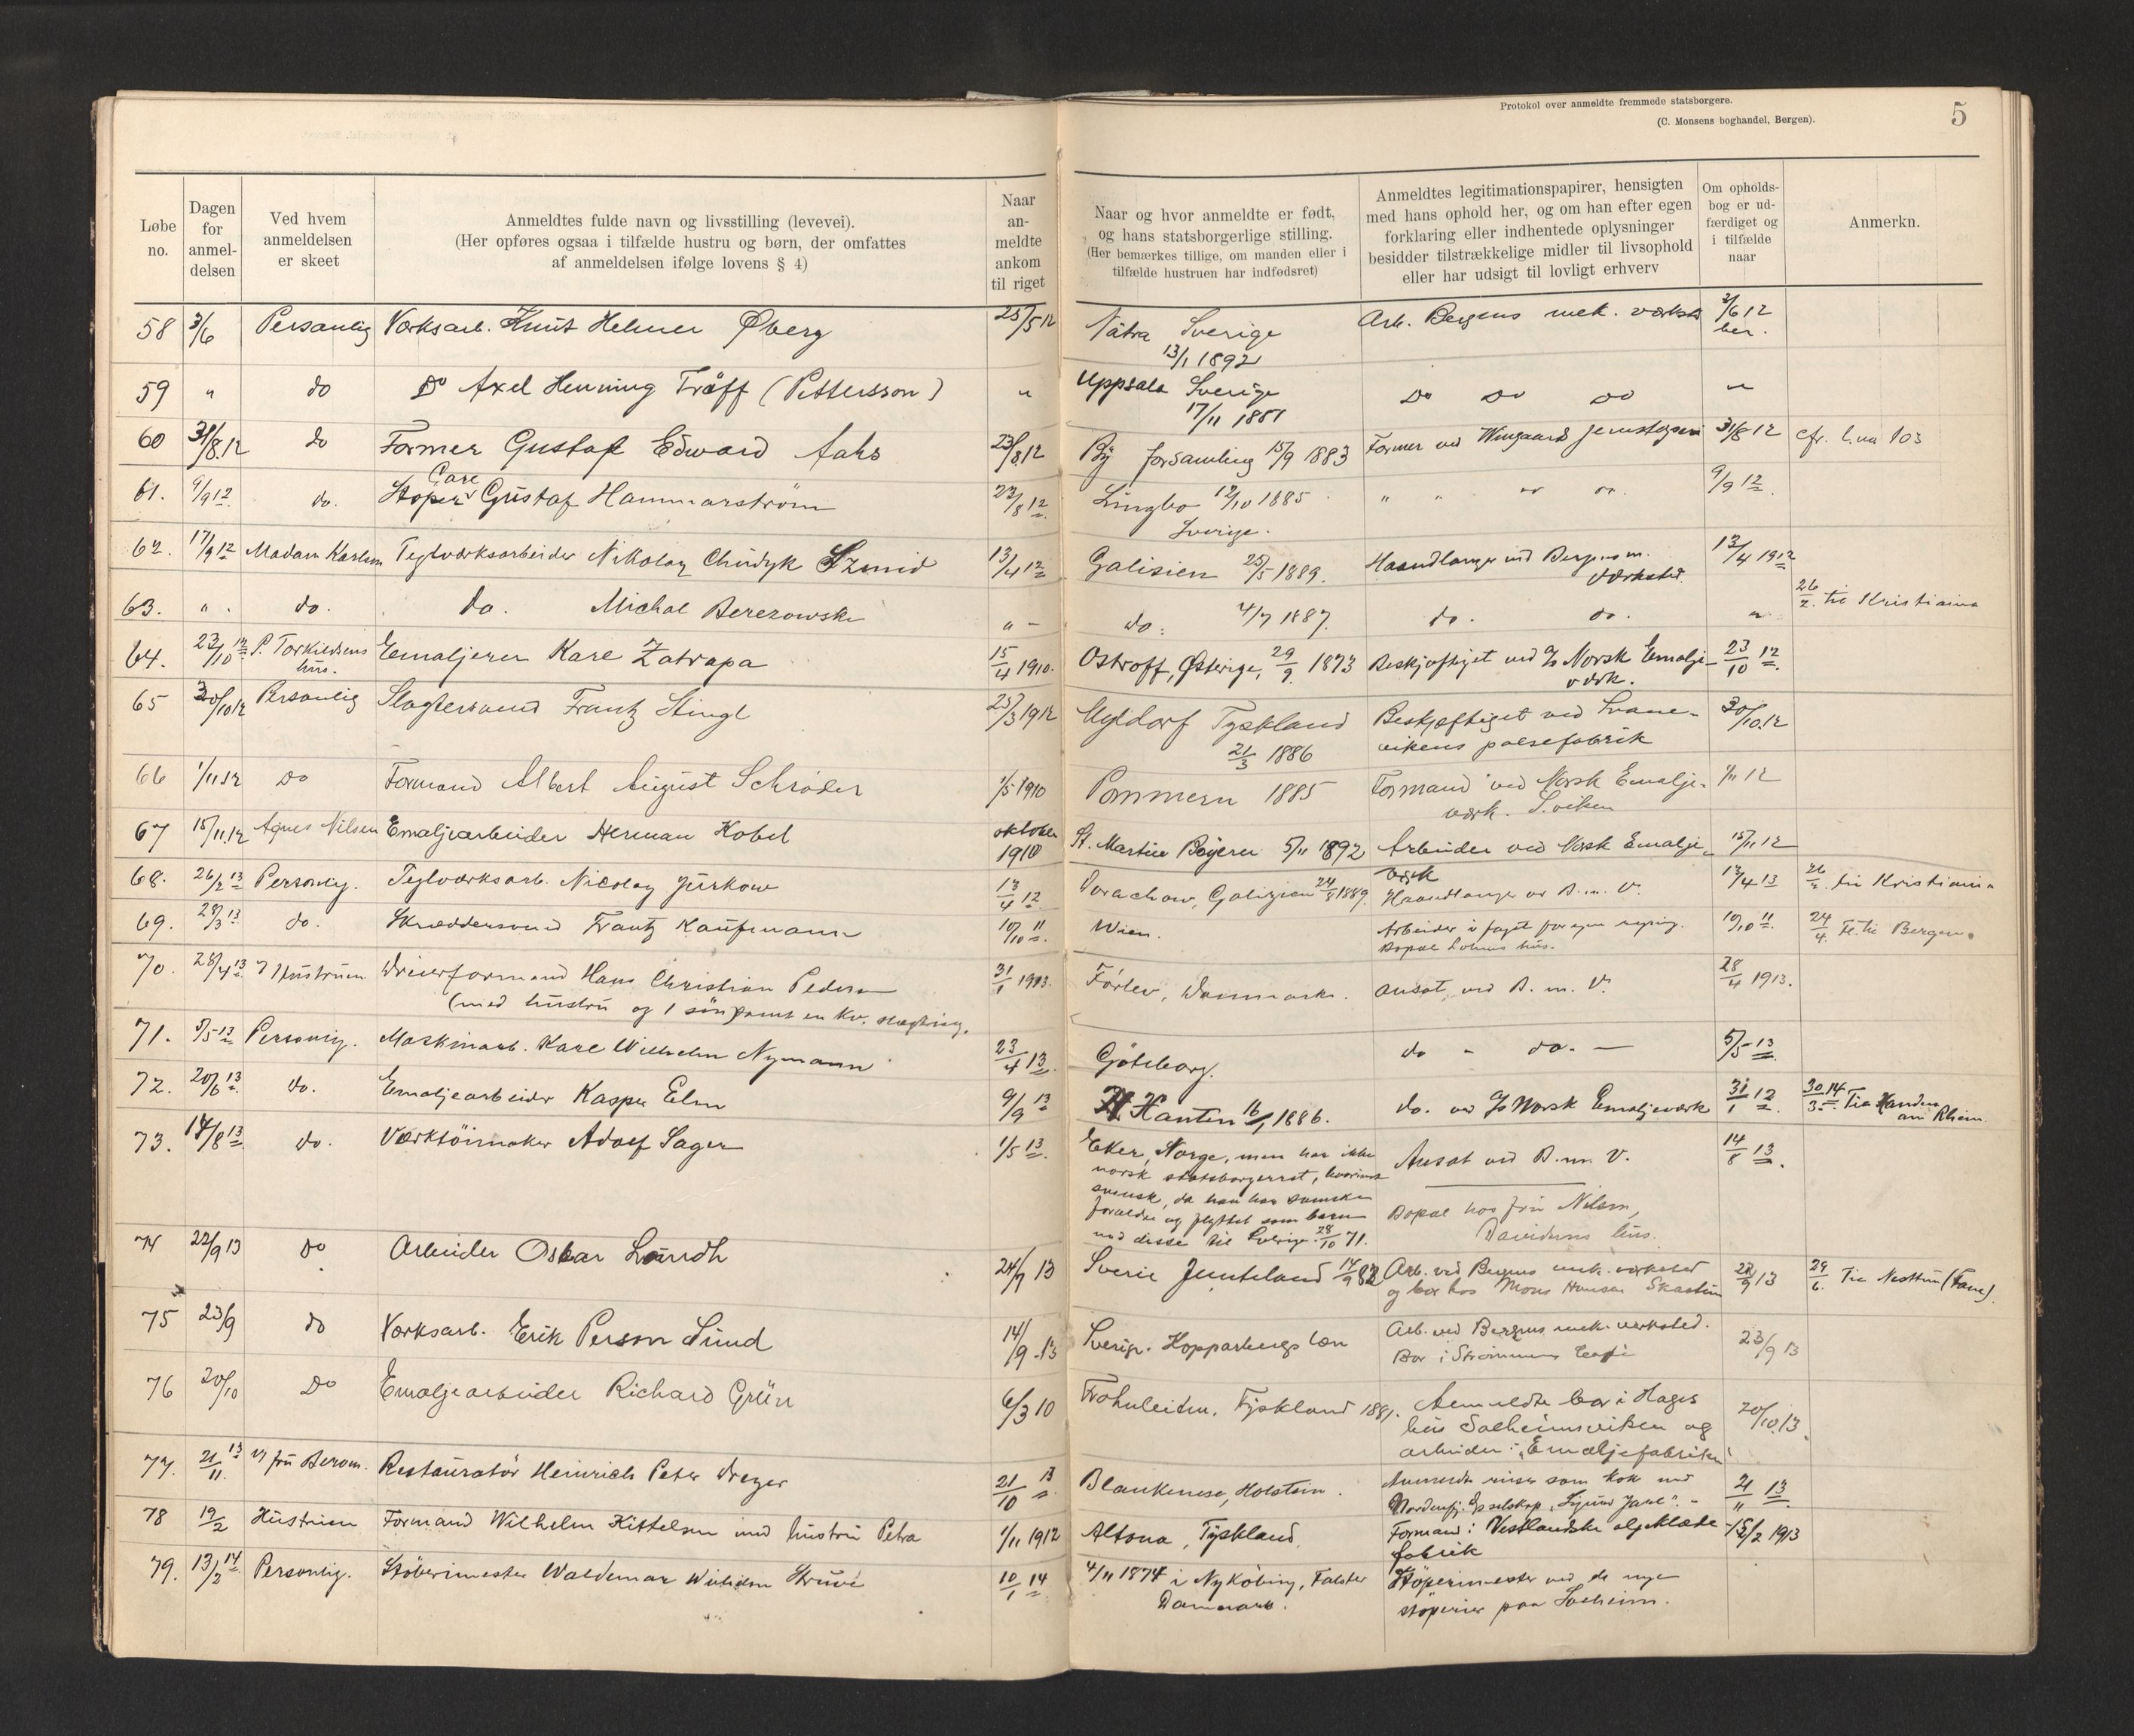 Protokol over anmeldte fremmede statsborgere.
(C. Monsens boghandel, Bergen).
5
Løbe no.
Dagen for anmel-delsen
Ved hvem anmeldelsen er skeet
Anmeldtes fulde navn og livsstilling (levevei).
(Her opføres ogsaa i tilfælde hustru og børn, der omfattes
af anmeldelsen ifølge lovens § 4)
Naar an-meldte ankom til riget
Naar og hvor anmeldte er født,
og hans statsborgerlige stilling.
(Her bemærkes tillige, om manden eller i
tilfælde hustruen har indfødsret)
Anmeldtes legitimationspapirer, hensigten
med hans ophold her, og om han efter egen
forklaring eller indhentede oplysninger
besidder tilstrækkelige midler til livsophold
eller har udsigt til lovligt erhverv
Om opholds-bog er ud-færdiget og i tilfælde naar
Anmerkn.
58 3/6 Personlig Værksarb. Knut Helmer Øberg 25/5 12 Nätra Sverige Arb. Bergens mek. værksted 3/6 12
13/1 1892
59 " do Do Axel Henning Träff (Pettersson) " Uppsala Sverige Do Do Do "
17/11 1881
60 31/8.12 do Former Gustaf Edward 23/8.12 By forsamling 15/9 1883 Former ved Wingaards jernstøperi 31/8 12 cfr. l.no 103
61. 9/9 12 do. Støper Carl Gustaf Hammarström 23/8 12 Lingbo 12/10 1885 " " 9/9 12.
Sverige.
62. 17/9 12 Madam Karlsen Teglværksarbeider Nikolay Chudyk Szmid 13/4 12 Galizien 25/5 1889. Haandlanger ved Bergens m. 13/4 1912
værksted.
63. " do. do. Michal Berezowski " do. 4/7 1887. do. do. " 26/2. til Kristiania
64. 23/10 12 P. Torkildsens Emaljerer Karl Zatrapa 15/4 1910. Ostroff, Østerige, 29/9 1873 Beskjæftiget ved A/S Norsk Emalje- 23/10 12.
hus. værk.
65 30/10 12 Personlig Slagtersvend Frantz Stingl 25/3 1912 Tyskland Beskjæftiget ved Svane- 30/10.12
21/3 1886 vikens pølsefabrik
66 1/11.12 Do Formand Albert August Schröder 1/5 1910 Pommern 1885 Formand ved Norsk Emalje- 1/11 12
værk. S.viken
67 15/11.12 Agnes Nilsen Emaljearbeider Herman Kobel oktober 1910 St. Martin Bayern 5/11 1892 Arbeider ved Norsk Emalje- 15/11 12
værk
68. 26/2 13 Personlig. Teglværksarb. Nicolay Jurkow 13/4 12 Galizien 24/8 1889. Haandlanger v B. m. V. 13/4 13 26/2. til Kristiania
69. 28/3 13 do. Skræddersvend Frantz Kaufmann 10/10 11. Wien. Arbeider i faget for egen regning. 10/10 11. 24/4. Fl. til Bergen.
Bopæl hus.
70. 28/4 13 Hustruen Dreierformand Hans Christian Pedersen 31/1 1913. Førlev, Danmark. ansat ved B. m. V. 28/4 1913.
(med hustru og 1 søn samt en kv. slægtning.
71. 5/5 13 Personlig. Maskinarb. Karl Wilhelm Nymann 23/4 13. Göteborg. do - do. - 5/5 13.
72. 20/6 13. do. Emaljearbeider Kasper Elm 9/9 13 Xanten 16/1 1886. do. ved A/S Norsk Emaljeværk 31/1 12. 30/3 14. Til
am Rhein.
73. 14/8 13. do. Værktöimaker Adolf Sager 1/5 13. Eker, Norge, men har ikke Ansat ved B. m. V. 14/8 13.
norsk statsborgerret, hvorimot
svensk, da han har svenske
forældre og flyttet som barn Bopæl hos fru Nilsen,
med disse til Sverige. 28/10 71. Davidsens hus.
74 22/9 13 Do Arbeider Oskar Lundh 24/7 13 Sverie Jemteland 14/9 82 Arb. ved Bergens mek. værksted 22/9 13 29/6. Til Nesttun (Fane).
og bor hos Mons Hansen
75 23/9 do Værksarb. Erik Person Sund 14/9 13 Sverige. Kopparbergs len Arb. ved Bergens mek. værksted. 23/9 13
Bor i Strømmens
76 20/10 Do Emaljearbeider Richard Grün 6/3 10 Frohnleiten, Tyskland 1881. Anmeldte bor i Hages 20/10.13.
hus Solheimsviken og
arbeider i "Emaljefabriken"
77. 21/11. 13 v/ fru Berom. Restauratör Heinrich Peter Dreyer 21/10 13 Blankenese, Holstein. Anmeldte reiser som kok med 21/11 13.
Nordenfj. Dpselskap "Sigurd Jarl". -
78 19/2 Hustruen Formand Wilhelm Kittelsen med hustru Petra 1/11 1912 Altona, Tyskland. Formand i Vestlandske oljeklæde- 15/2 1913
fabrik
79. 13/2 14. Personlig. Stöberimester Waldemar Wilhelm Struve 10/1 14 4/11 1874 i Nykøbing, Falster Støperimester ved de nye
Danmark. støperier paa Solheim.